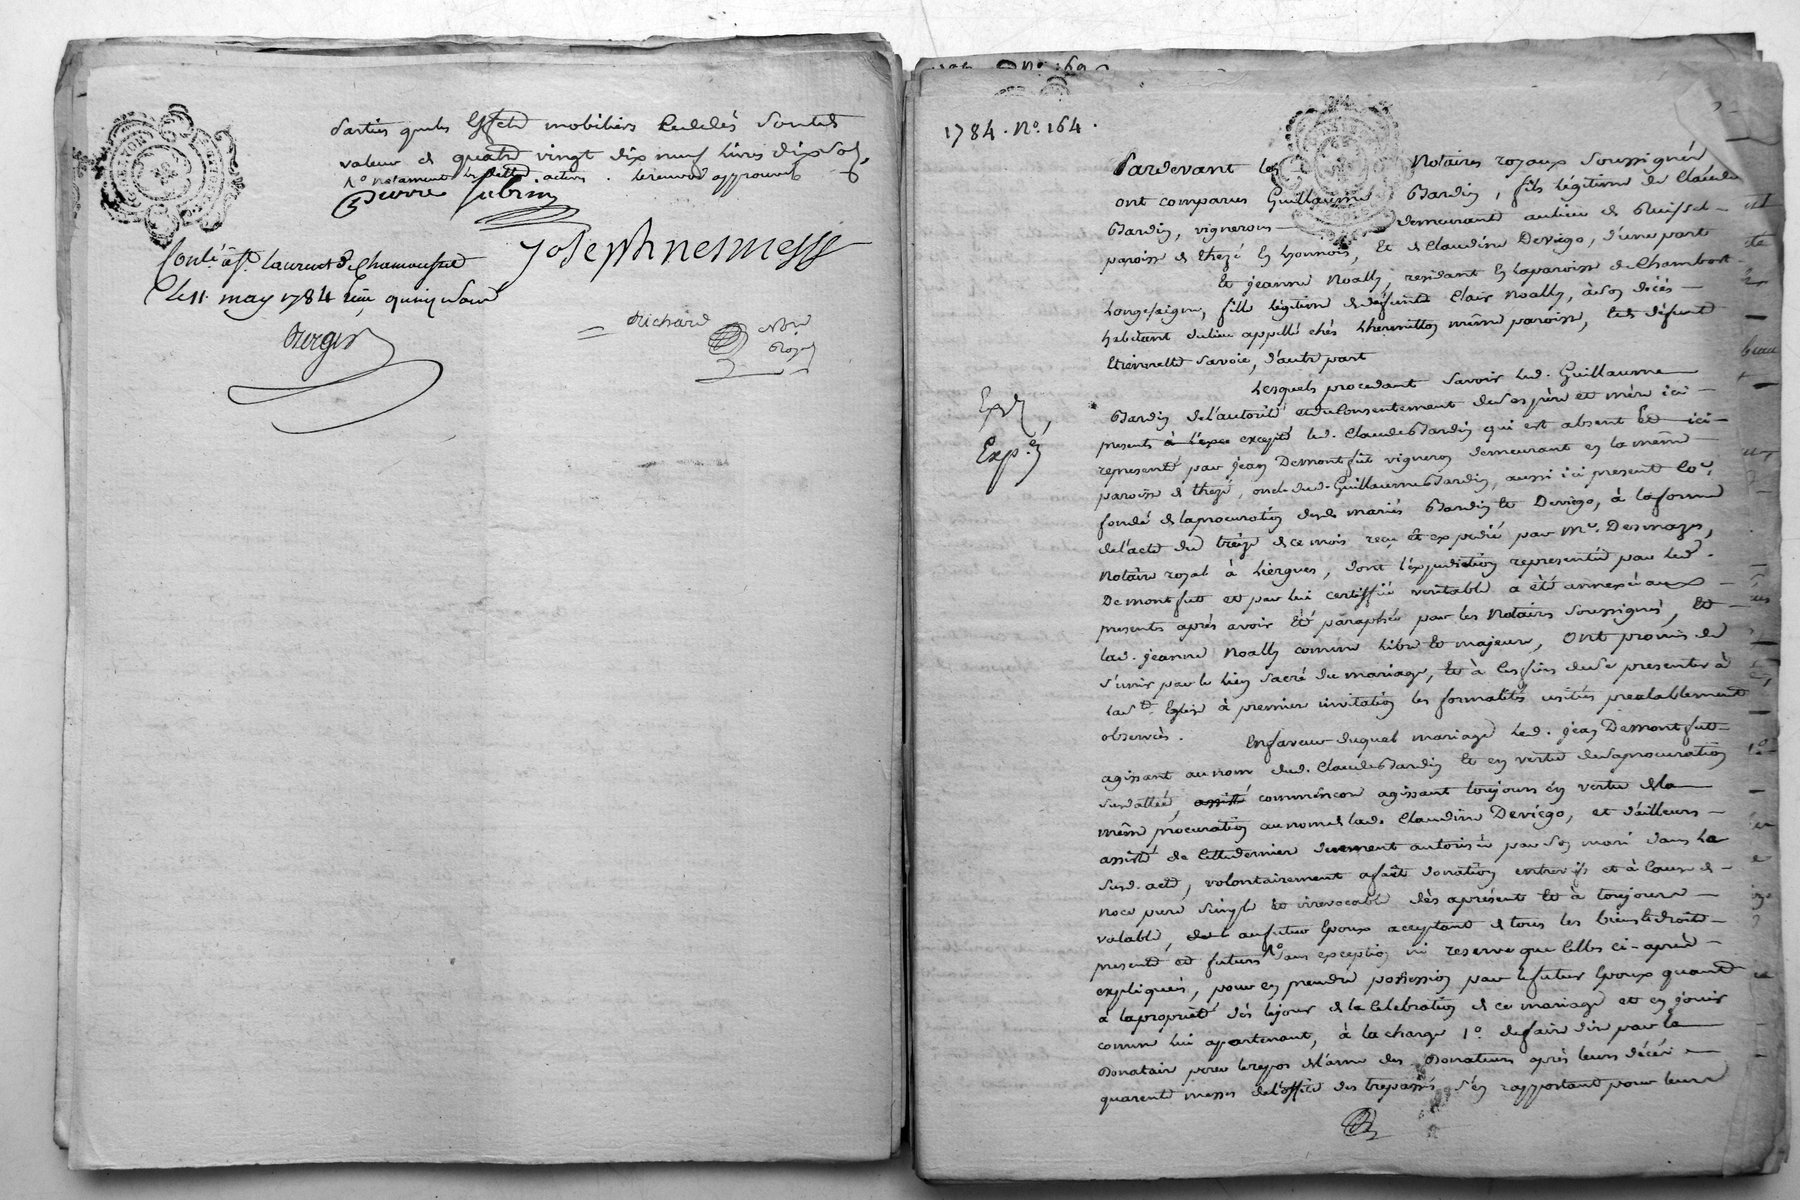 parties que les effets mobiliers sont de
valeur de quatre vingt dix neuf livres dix sols
1° notament approuvés
Pierre Subrin
Josephnesmess
Conlé. à St. Laurent de Chamousset
Le 11. may 1784 quinze sous
Berger
Richard
Nore
Royal
1784. N°. 164.
Pardevant les Notaires royaux soussignés
ont comparus Guillaume Bardin, fils légitime de Claude
Bardin, vigneron demeurant au lieu de
paroisse de thezé en Lyonnois, et de Claudine Deviégo, d'une part
Et jeanne Noally, residant en la paroisse de Chambost
Longesaigne, fille légitime de défunt Clair Noally, à son décès
habitant du lieu appellé chés Lhermitton même paroisse, et de défunte
Etiennette Savoie, d'autre part
Lesquels procedant Savoir led. Guillaume
Bardin de l'autorité et du Consentement de ses père et mère ici
presents excepté led. Claude Bardin qui est absent et ici
representé par jean Demontfut vigneron demeurant en la même
paroisse de thezé, oncle dud. Guillaume Bardin, aussi ici present
fondé de la procuration desd. mariés Bardin et Deviego, à la forme
de l'acte du treize de ce mois reçu et expedié par Me. Desmazes,
Notaire royal à Liergues, dont l'expedition representée par led.
Demontfut et par lui certiffiée veritable a été annexée aux
presentes après avoir été paraphée par les Notaires soussignés, Et
lad. jeanne Noally comme libre et majeure, Ont promis de
s'unir par le lien sacré du mariage, et à ces fins de se presenter à
la Ste. Eglise à premiere invitation les formalités usitées prealablement
observées.
En faveur duquel mariage led. jean Demontfut
agissant au nom dud. Claude Bardin et en vertu de sa procuration
susd. allée, assisté comme encore agissant toujours en vertu de la
même procuration au nom de lad. Claudine Deviégo, et d'ailleurs
assisté de cette derniere duement autorisée par son mari dans le
susd. acte, volontairement a fait donation entrevifs et à cause de
noce pure simple et irrevocable dès aprésent et à toujours
valable, au futur Epoux acceptant de tous les biens et droits
presents et futurs 1° sans exception ni reserve que celles ci-après
expliquées, pour en prendre possession par le futur Epoux quand
à la proprieté dès le jour de la Celebration de ce mariage et en jouir
comme lui apartenant, à la charge 1°. de faire dire par le
Donataire pour le repos de l'ame des Donateurs après leurs décès
quarente messes de l'office des trepassés s'en rapportant pour leurs
Exp.